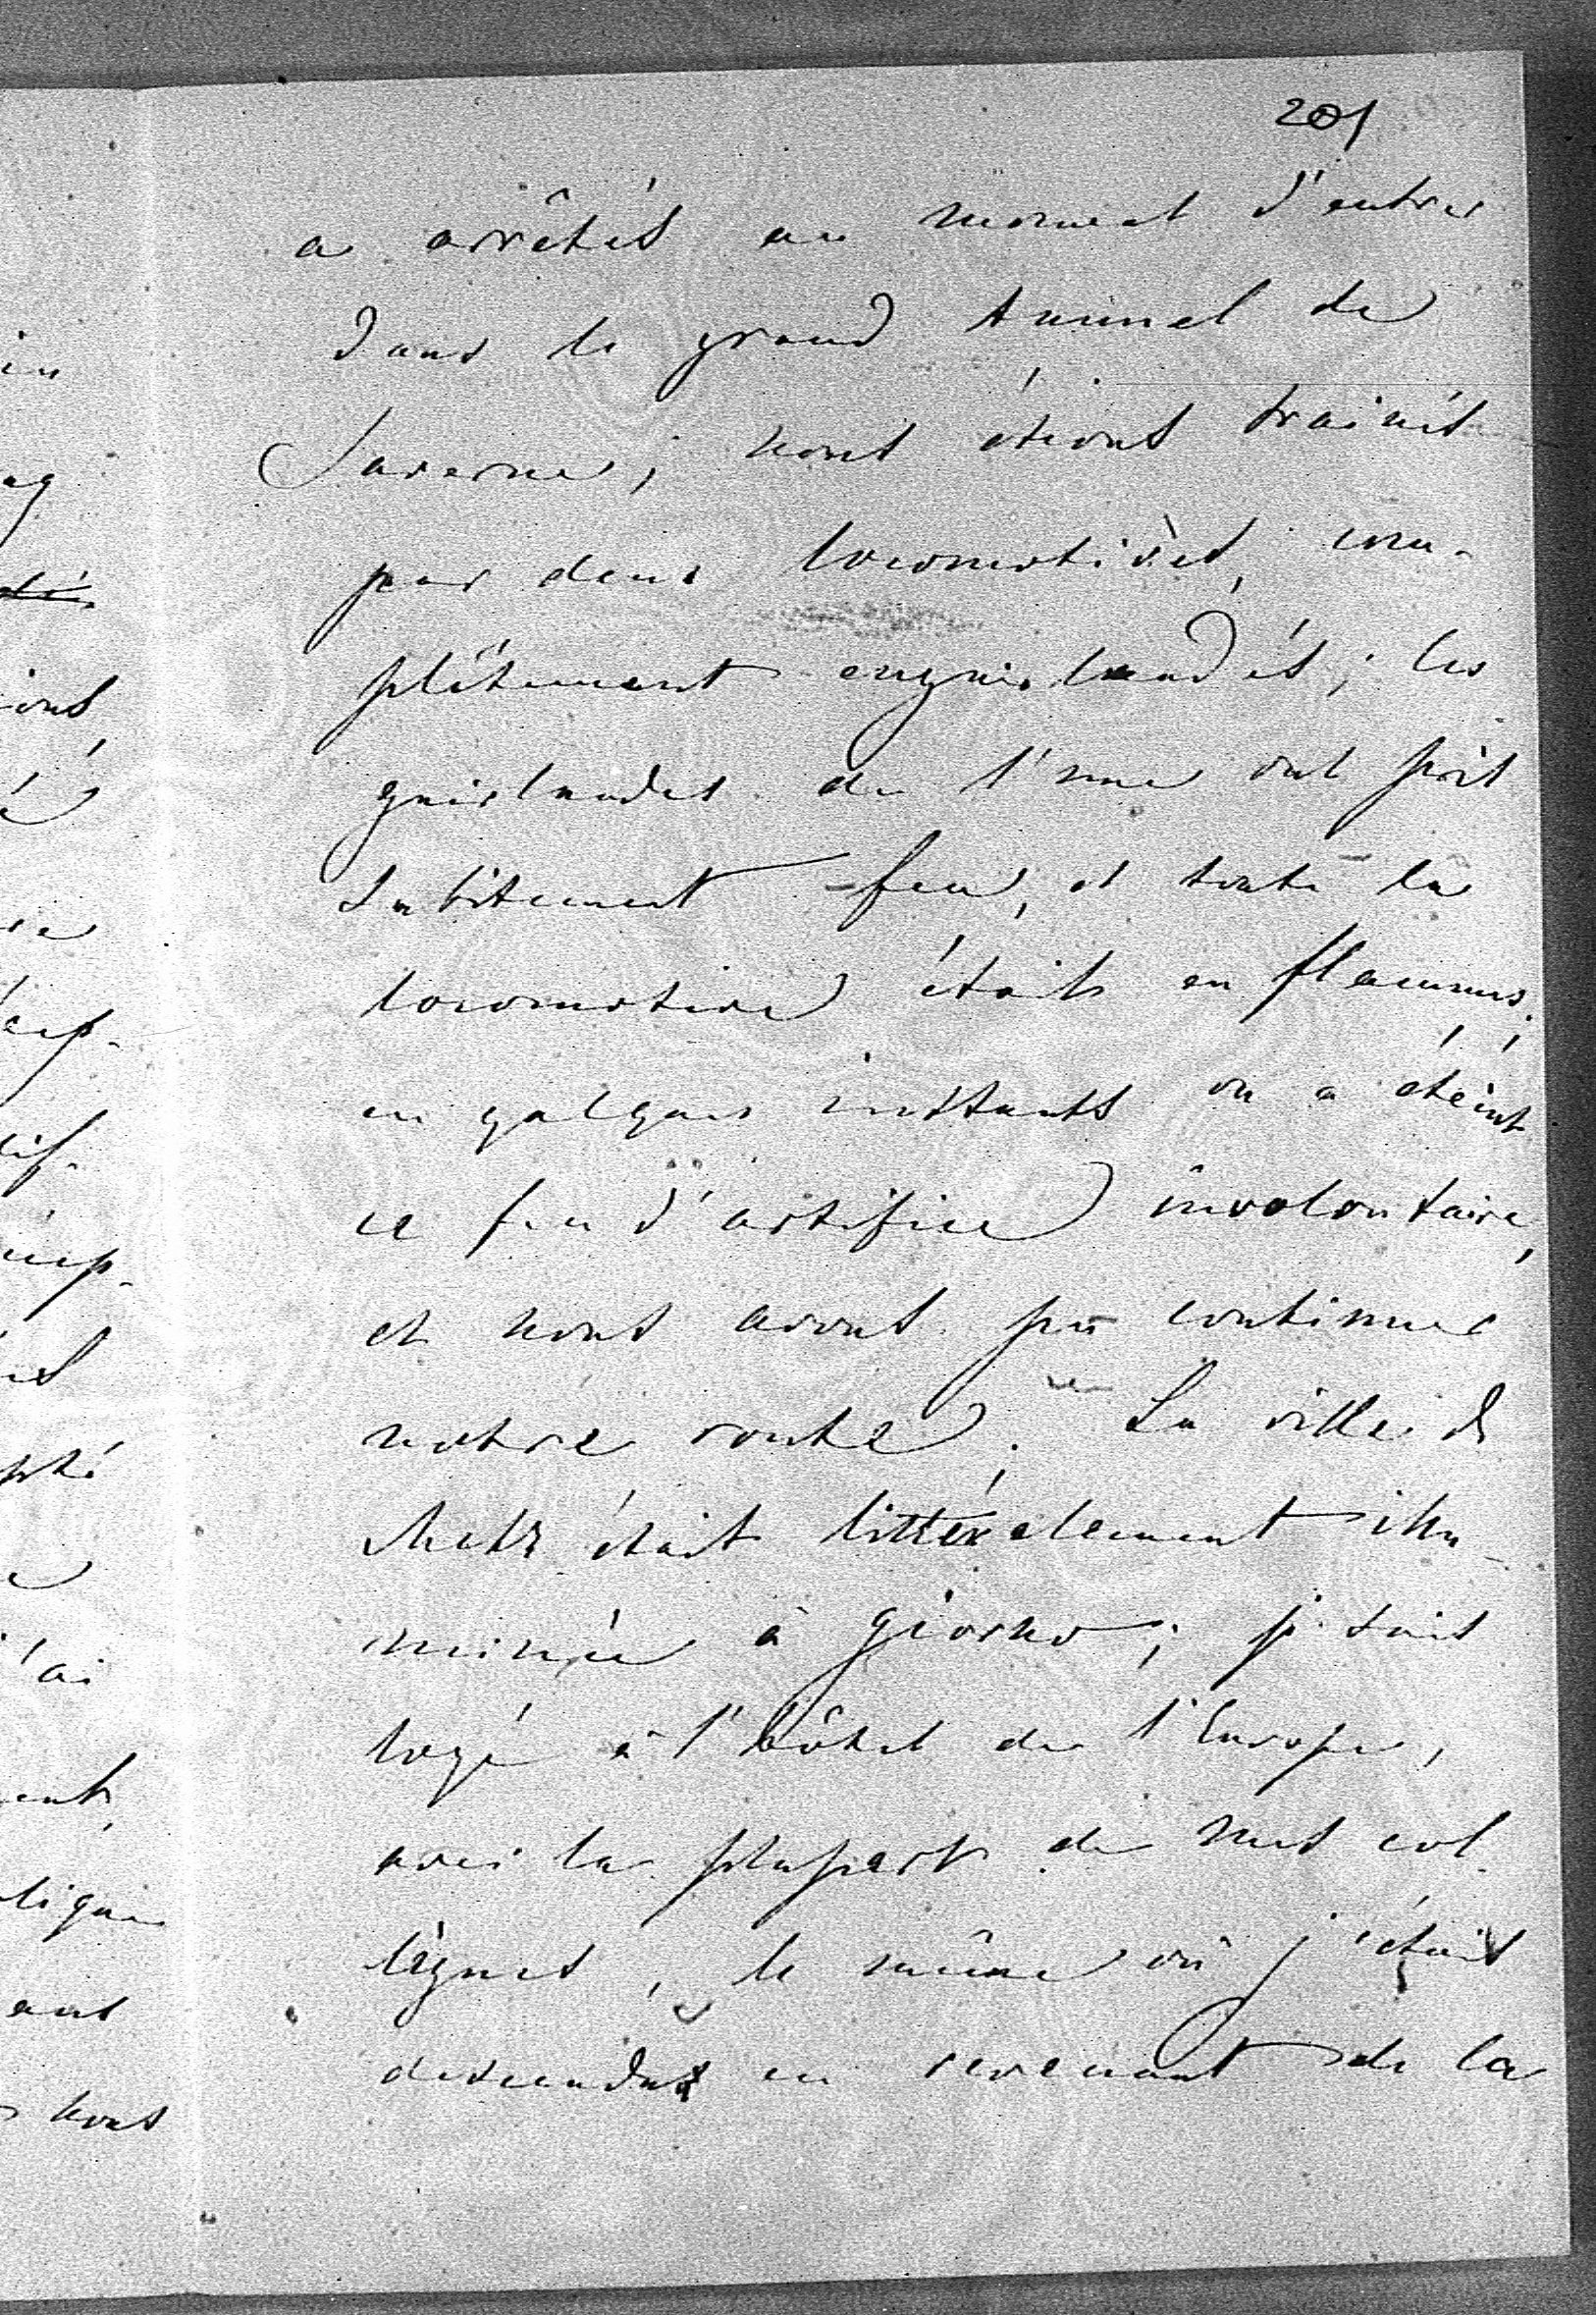 201
a arrêtés au moment d'entrer
dans le grand tunnel de
Saverne; nous étions traînés
par deux locomotives, com-
plètement enguirlandés; les
guirlandes de l'une ont pris
subitement feu, et toute la
locomotive était en flammes;
en quelques instants on a éteint
ce feu d'artifice involontaire,
et nous avons pu continuer
notre route. La ville de
Metz était littéralement illu-
minée à giorno; j'étais
logé à l'hôtel de l'Europe,
avec la plupart de mes col-
lègues, le même où j'étais
descendu en revenant de la